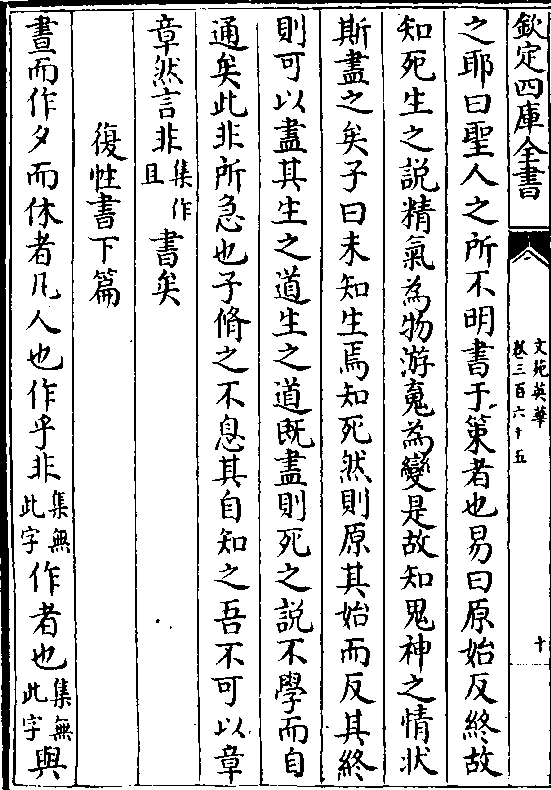 欽定四庫全書
文苑英華
卷三百六十五
十
之耶曰聖人之所不明書于策者也易曰原始反終故
知死生之說精氣為物游䰟為變是故知鬼神之情狀
斯盡之矣子曰未知生焉知死然則原其始而反其終
則可以盡其生之道生之道既盡則死之說不學而自
通矣此非所急也子脩之不息其自知之吾不可以章
章然言非集作且書矣
復性書下篇
晝而作夕而休者凡人也作乎非集無此字作者也集無此字與